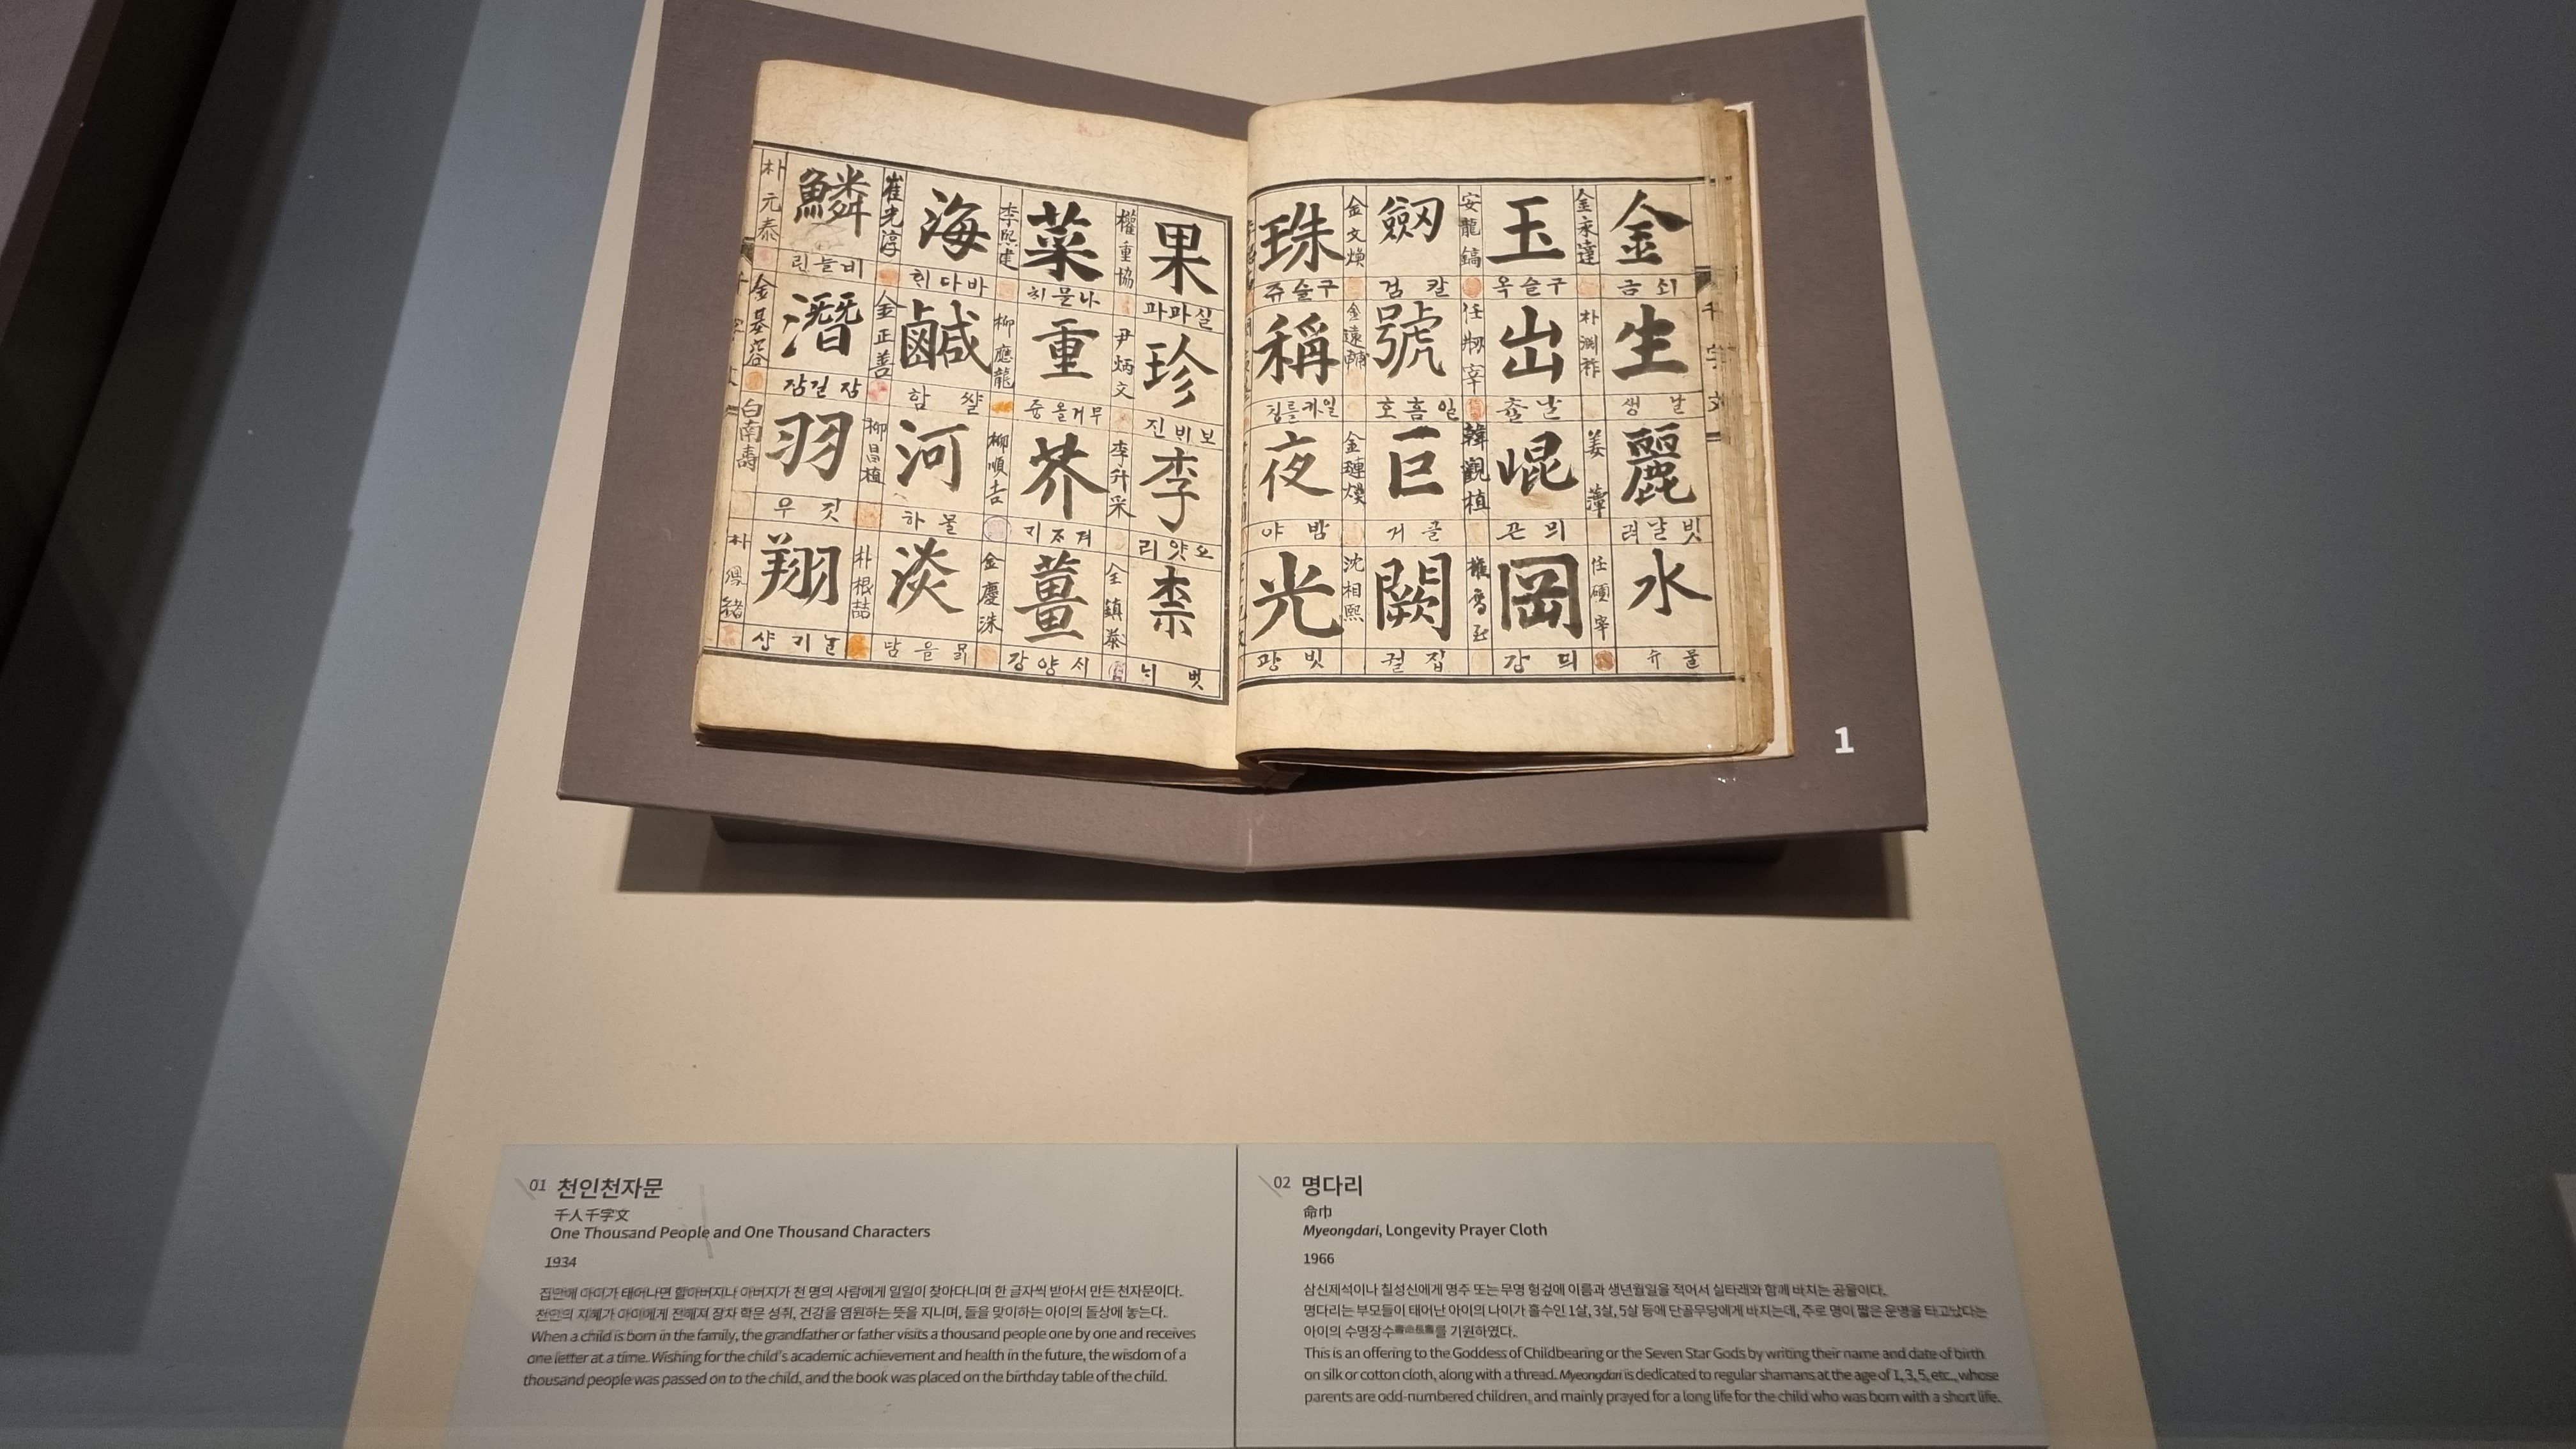 金
쇠 금
生
날 생
麗
빗날려
水
물 슈
金永達
朴淵祚
任碩宰
玉
구슬옥
出
날 츌
崐
뫼 곤
岡
뫼 강
安龍鎬
韓觀植
劒
칼 검
號
일흠호
巨
클 거
闕
집 궐
金文煥
金遠輔
沈相熙
珠
구슬쥬
稱
일카를칭
夜
밤 야
光
빗 광
果
실과과
珍
보비진
李
오얏리
柰
벗 닉
權重協
尹炳文
李升采
全鎮泰
菜
나물치
重
무거울즁
芥
겨자기
薑
시양강
李熙建
柳應龍
柳順吉
金慶洙
海
바다히
鹹
짤 함
河
물 하
淡
맑을담
崔光淳
金正善
柳昌植
朴根喆
鱗
비늘린
潛
잠길잠
羽
깃 우
翔
날기샹
朴元泰
金基容
白南壽
千字文
1
01 천인천자문
千人千字文
One Thousand People and One Thousand Characters
1934
집안에 아이가 태어나면 할아버지나 아버지가 천 명의 사람에게 일일이 찾아다니며 한 글자씩 받아서 만든 천자문이다.
천인의 지혜가 아이에게 전해져 장차 학문 성취, 건강을 염원하는 뜻을 지니며, 돌을 맞이하는 아이의 돌상에 놓는다.
When a child is born in the family, the grandfather or father visits a thousand people one by one and receives
one letter at a time. Wishing for the child's academic achievement and health in the future, the wisdom of a
thousand people was passed on to the child, and the book was placed on the birthday table of the child.
02 명다리
命巾
Myeongdari, Longevity Prayer Cloth
1966
삼신제석이나 칠성신에게 명주 또는 무명 헝겊에 이름과 생년월일을 적어서 실타래와 함께 바치는 공물이다.
명다리는 부모들이 태어난 아이의 나이가 홀수인 1살, 3살, 5살 등에 단골무당에게 바치는데, 주로 명이 짧은 운명을 타고났다는
아이의 수명장수壽命長壽를 기원하였다.
This is an offering to the Goddess of Childbearing or the Seven Star Gods by writing their name and date of birth
on silk or cotton cloth, along with a thread. Myeongdari is dedicated to regular shamans at the age of 1, 3, 5, etc., whose
parents are odd-numbered children, and mainly prayed for a long life for the child who was born with a short life.